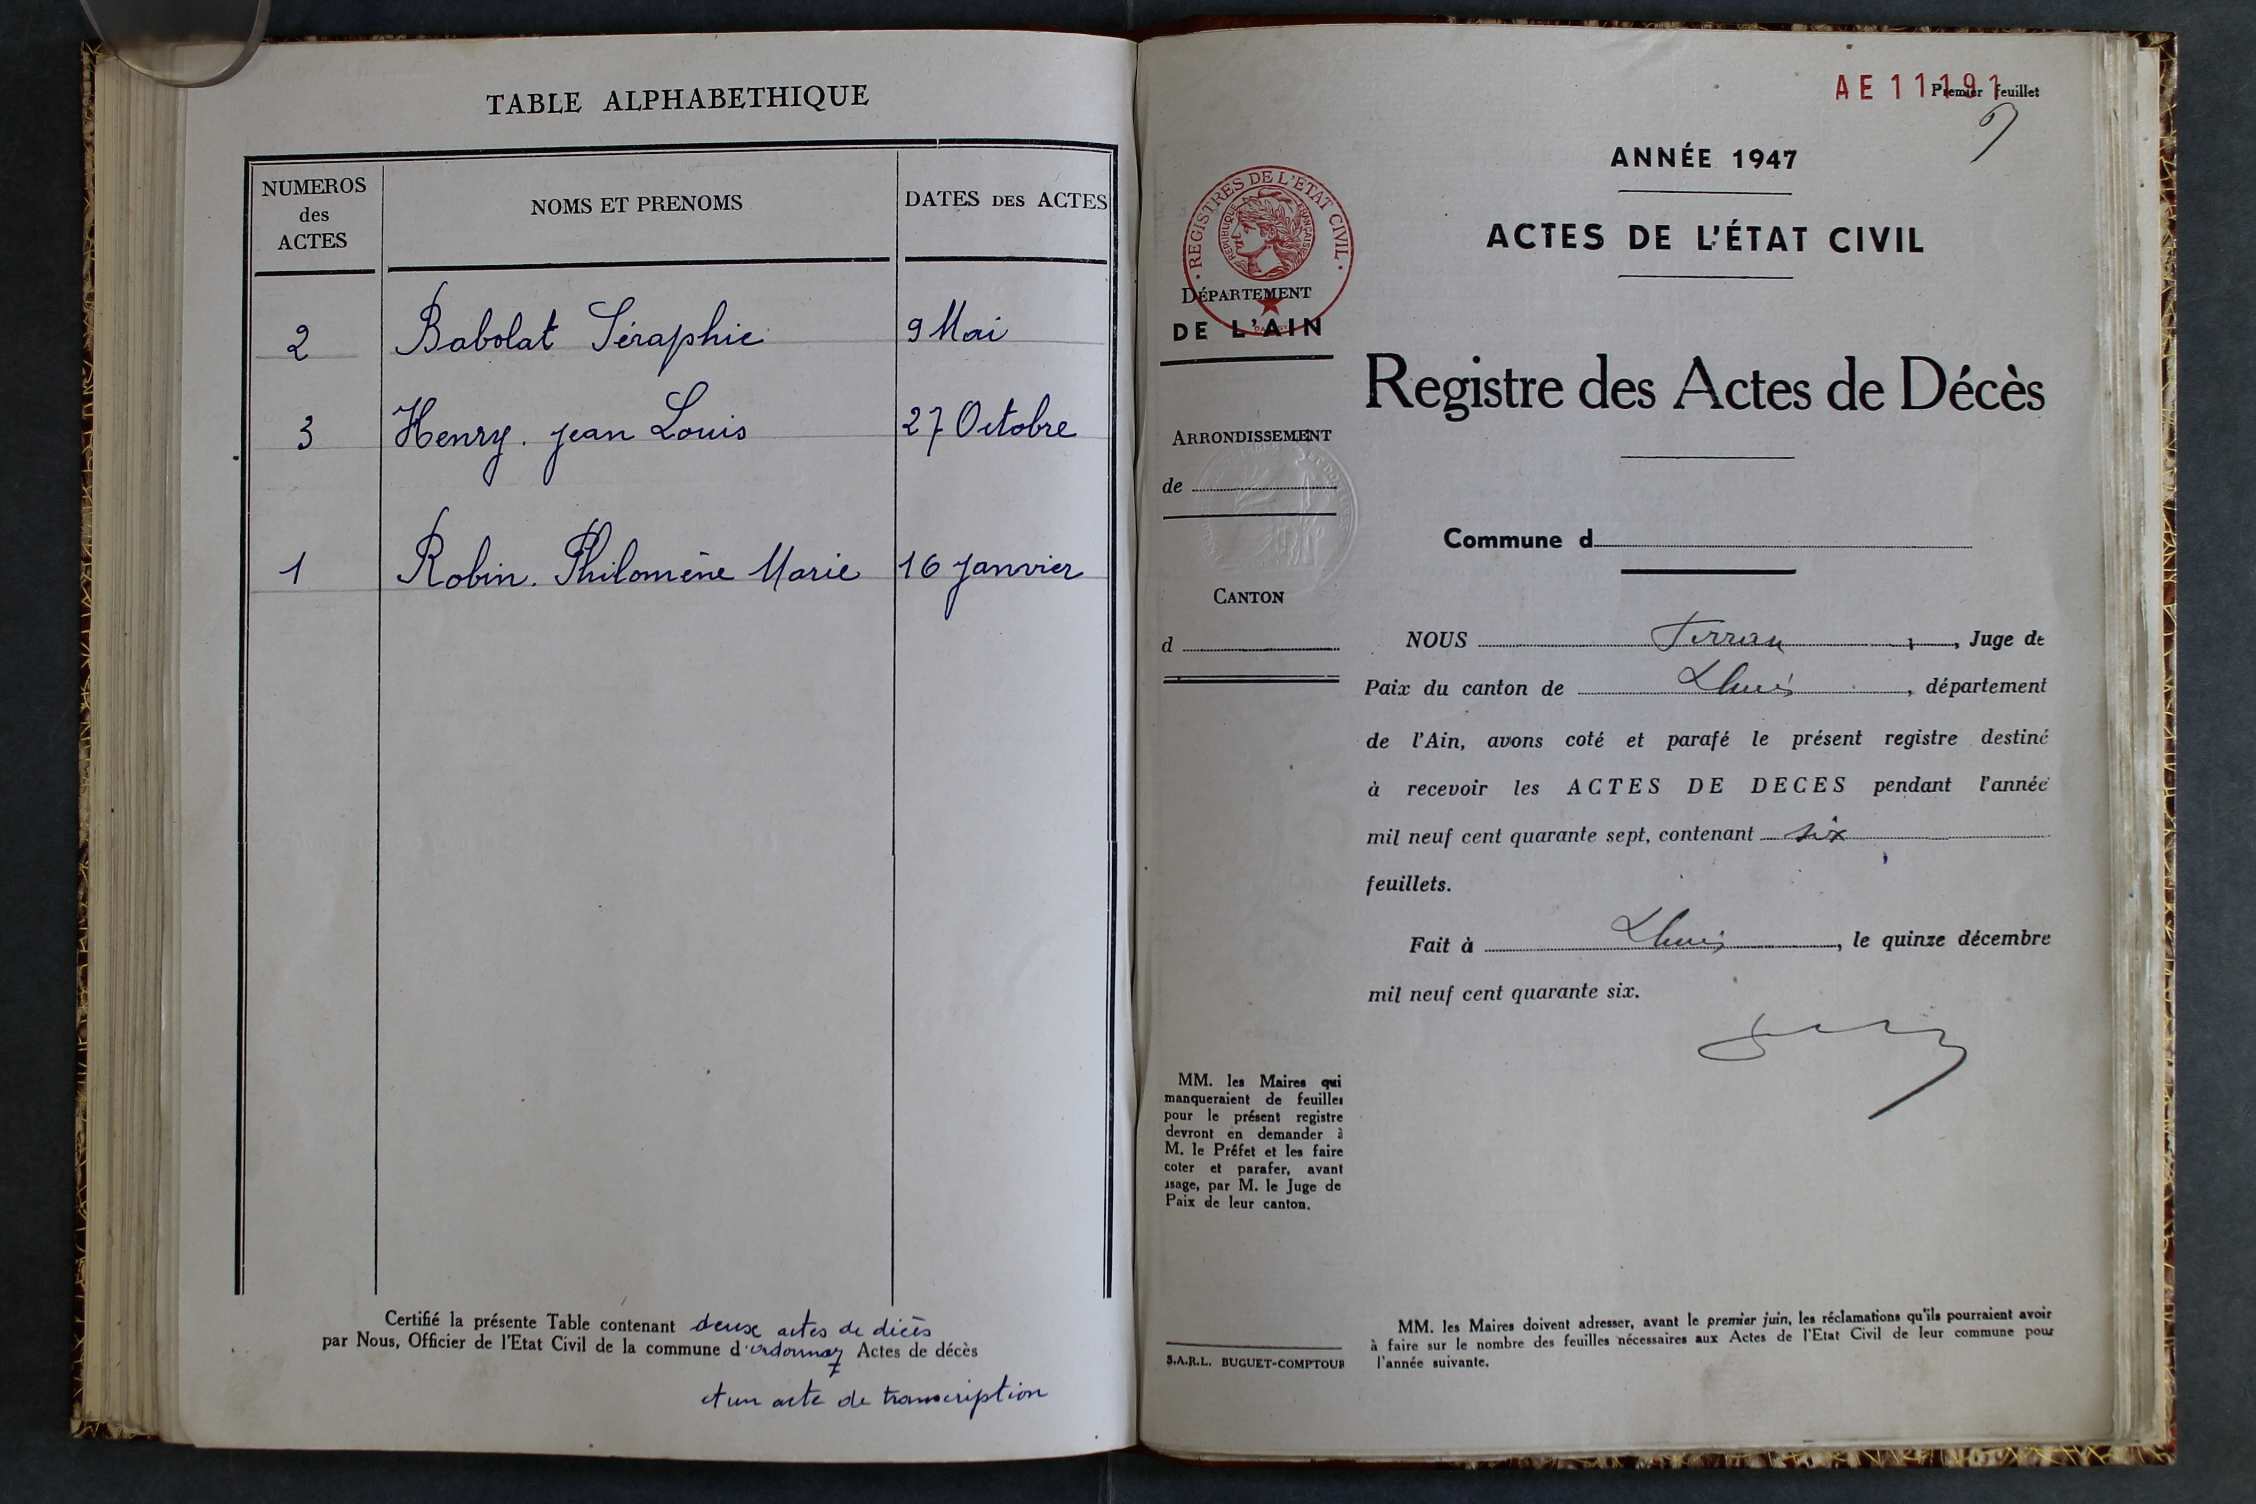 TABLE ALPHABETHIQUE
NUMEROS
des
ACTES
NOMS ET PRENOMS
DATES DES ACTES
2 Babolat Séraphie 9 Mai
3 Henry. jean Louis 27 Octobre
1 Robin. Philomène Marie 16 janvier
Certifié la présente Table contenant deux actes de décès
par Nous, Officier de l'Etat Civil de la commune d'ordonnaz Actes de décès
et un acte de transcription
AE 11191
Premier feuillet
ANNÉE 1947
ACTES DE L'ÉTAT CIVIL
REGISTRES DE L'ÉTAT CIVIL
REPUBLIQUE FRANÇAISE
DÉPARTEMENT
DE L'AIN
Registre des Actes de Décès
ARRONDISSEMENT
de
Commune d
CANTON
d
NOUS , Juge de
Paix du canton de Lhuis, département
de l'Ain, avons coté et parafé le présent registre destiné
à recevoir les ACTES DE DECES pendant l'année
mil neuf cent quarante sept, contenant six
feuillets.
Fait à Lhuis, le quinze décembre
mil neuf cent quarante six.
MM. les Maires qui
manqueraient de feuilles
pour le présent registre
devront en demander à
M. le Préfet et les faire
coter et parafer, avant
usage, par M. le Juge de
Paix de leur canton.
S.A.R.L. BUGUET-COMPTOUR
MM. les Maires doivent adresser, avant le premier juin, les réclamations qu'ils pourraient avoir
à faire sur le nombre des feuilles nécessaires aux Actes de l'Etat Civil de leur commune pour
l'année suivante.